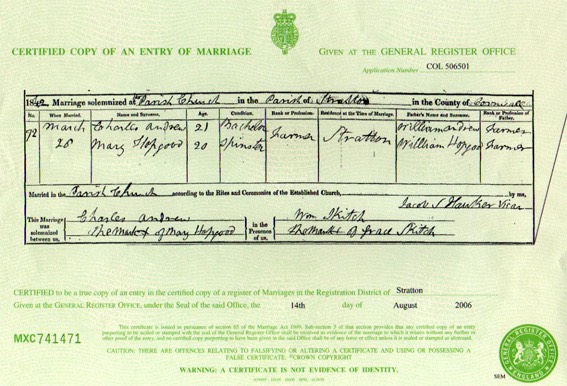 CERTIFIED COPY OF AN ENTRY OF MARRIAGE
GIVEN AT THE GENERAL REGISTER OFFICE
Application Number COL 506501
1842 Marriage solemnized at Parish Church in the Parish of Stratton in the County of Cornwall
No. When Married. Name and Surname. Age. Condition. Rank or Profession. Residence at the Time of Marriage. Father's Name and Surname. Rank or Profession of Father.
72 March Charles andrew 21 Bachelor Farmer Stratton William andrew Farmer
28 Mary Hopgood 20 Spinster William Hopgood Farmer
Married in the Parish Church according to the Rites and Ceremonies of the Established Church, by me,
Jacob S Hawker Vicar
This Marriage was solemnized between us, Charles andrew in the Presence of us, Wm Skitch
The Mark X of Mary Hopgood The Mark X of Grace Skitch
CERTIFIED to be a true copy of an entry in the certified copy of a register of Marriages in the Registration District of Stratton
Given at the GENERAL REGISTER OFFICE, under the Seal of the said Office, the 14th day of August 2006
MXC741471
This certificate is issued in pursuance of section 65 of the Marriage Act 1949. Sub-section 3 of that section provides that any certified copy of an entry
purporting to be sealed or stamped with the seal of the General Register Office shall be received as evidence of the marriage to which it relates without any further or
other proof of the entry, and no certified copy purporting to have been given in the said Office shall be of any force or effect unless it is sealed or stamped as aforesaid.
CAUTION: THERE ARE OFFENCES RELATING TO FALSIFYING OR ALTERING A CERTIFICATE AND USING OR POSSESSING A
FALSE CERTIFICATE. ©CROWN COPYRIGHT
WARNING: A CERTIFICATE IS NOT EVIDENCE OF IDENTITY.
GENERAL REGISTER OFFICE
ENGLAND
SEM